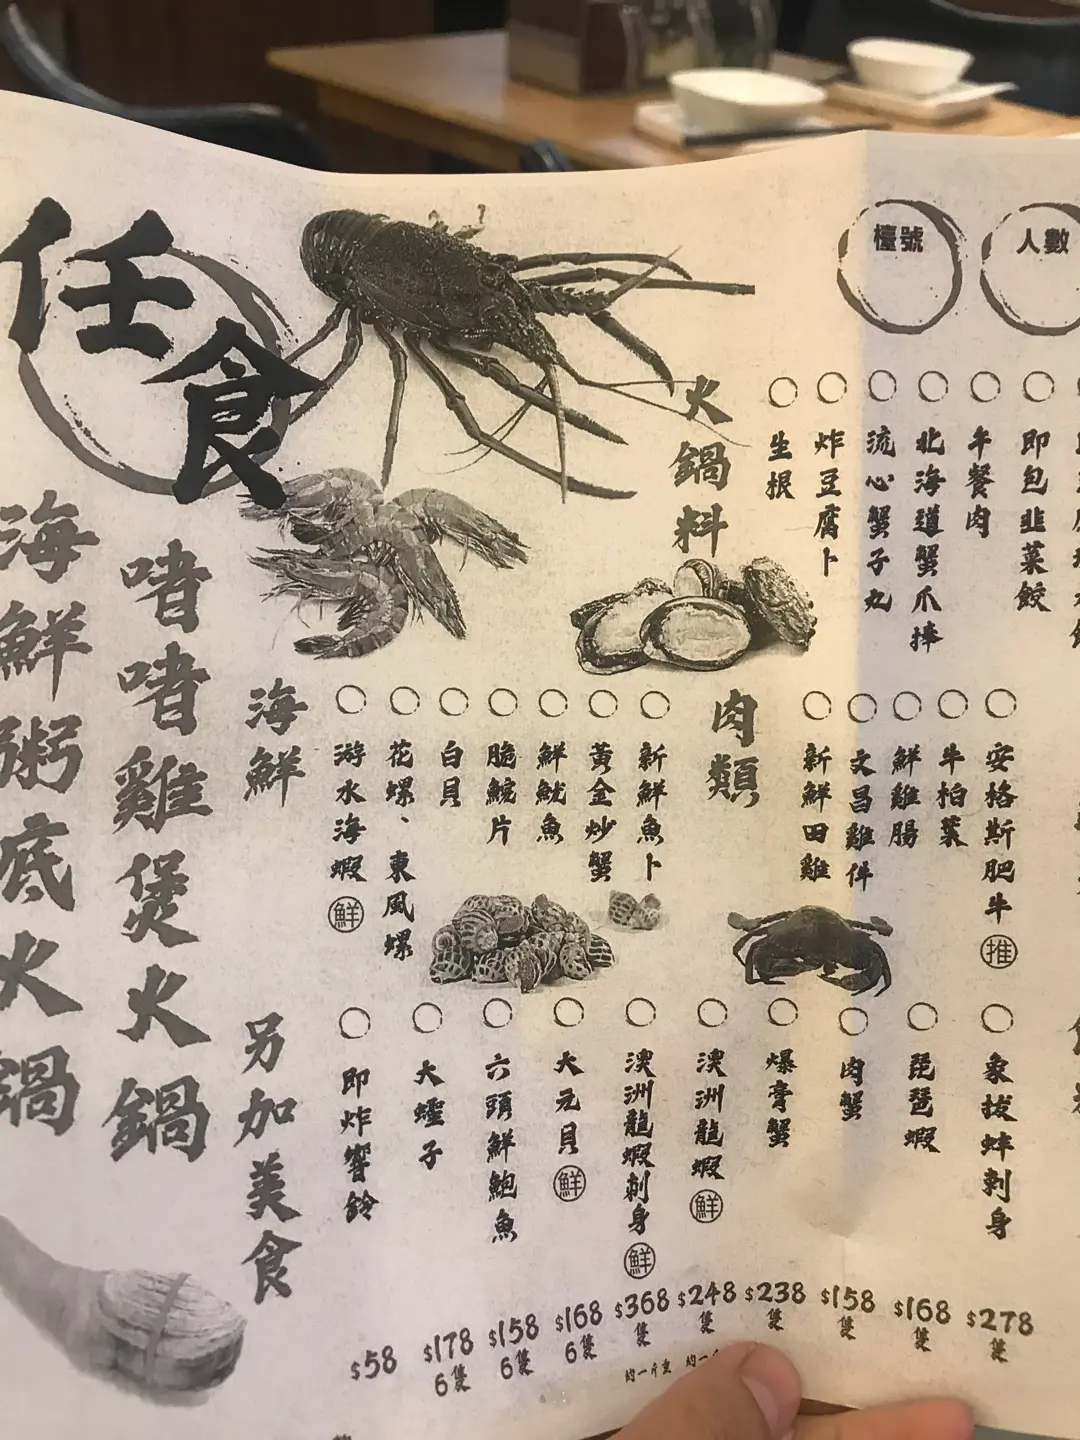 任食
海鮮粥底火鍋
啫啫雞煲火鍋
檯號
人數
火鍋料
生根
炸豆腐卜
流心蟹子丸
北海道蟹爪捧
午餐肉
即包韭菜餃
海鮮
游水海蝦 鮮
花螺、東風螺
白貝
脆鯇片
鮮魷魚
黃金炒蟹
新鮮魚卜
肉類
新鮮田雞
文昌雞件
鮮雞腸
牛柏葉
安格斯肥牛 推
另加美食
即炸響鈴 $58
大蟶子 $178 6隻
六頭鮮鮑魚 $158 6隻
大元貝 鮮 $168 6隻
澳洲龍蝦刺身 鮮 $368 隻 約一斤重
澳洲龍蝦 鮮 $248 隻 約一
爆膏蟹 $238 隻
肉蟹 $158 隻
琵琶蝦 $168 隻
象拔蚌刺身 $278 隻